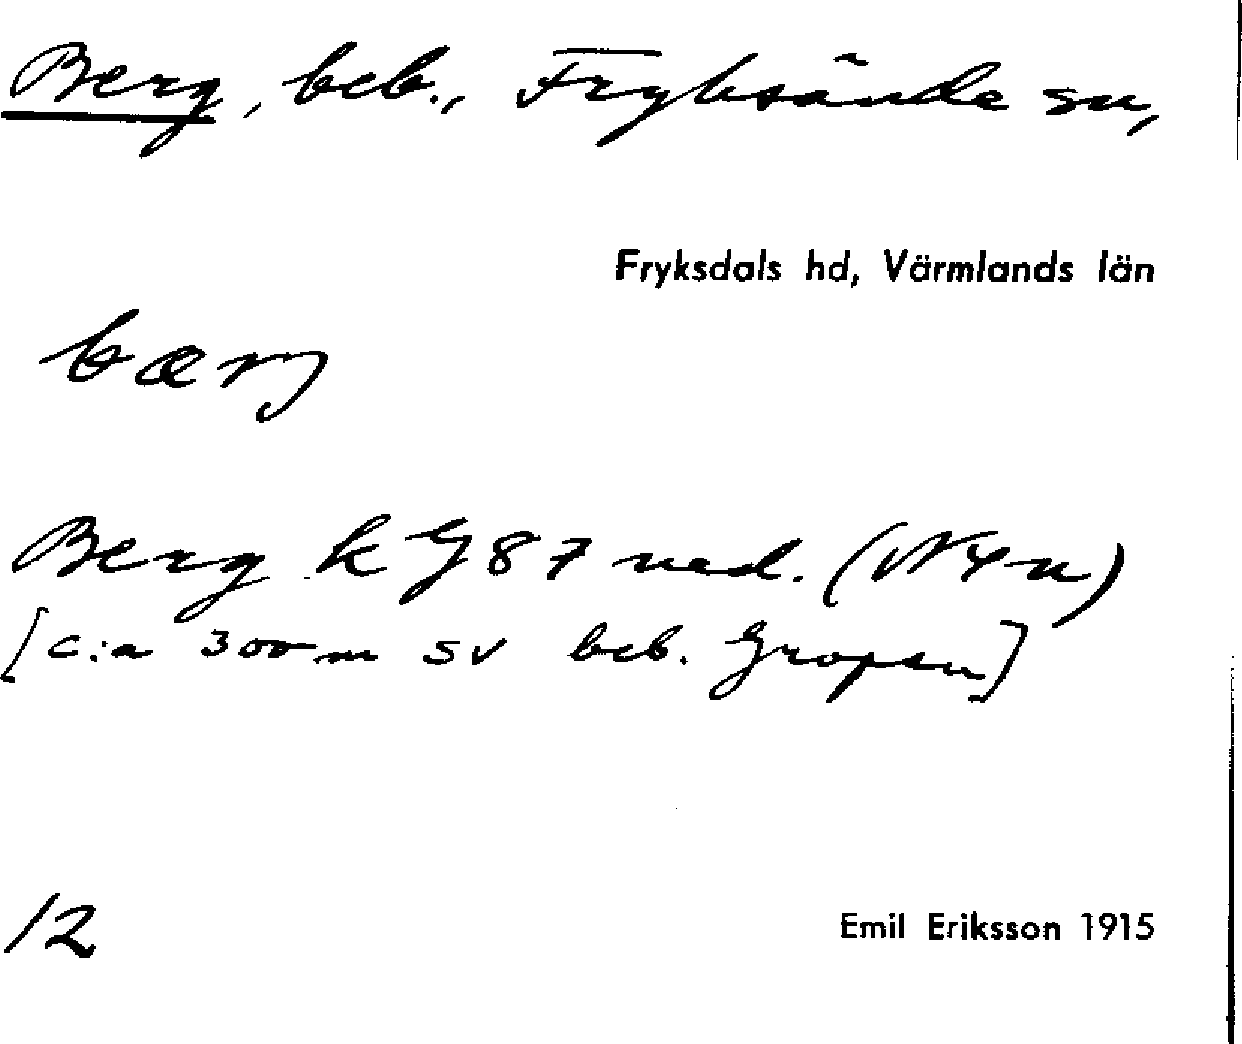 Berg, beb., Fryksände sn,
Fryksdals hd, Värmlands län
bærj
Berg k G 87 ned. (N4n)
[c:a 300 m SV beb. Gropen]
12
Emil Eriksson 1915